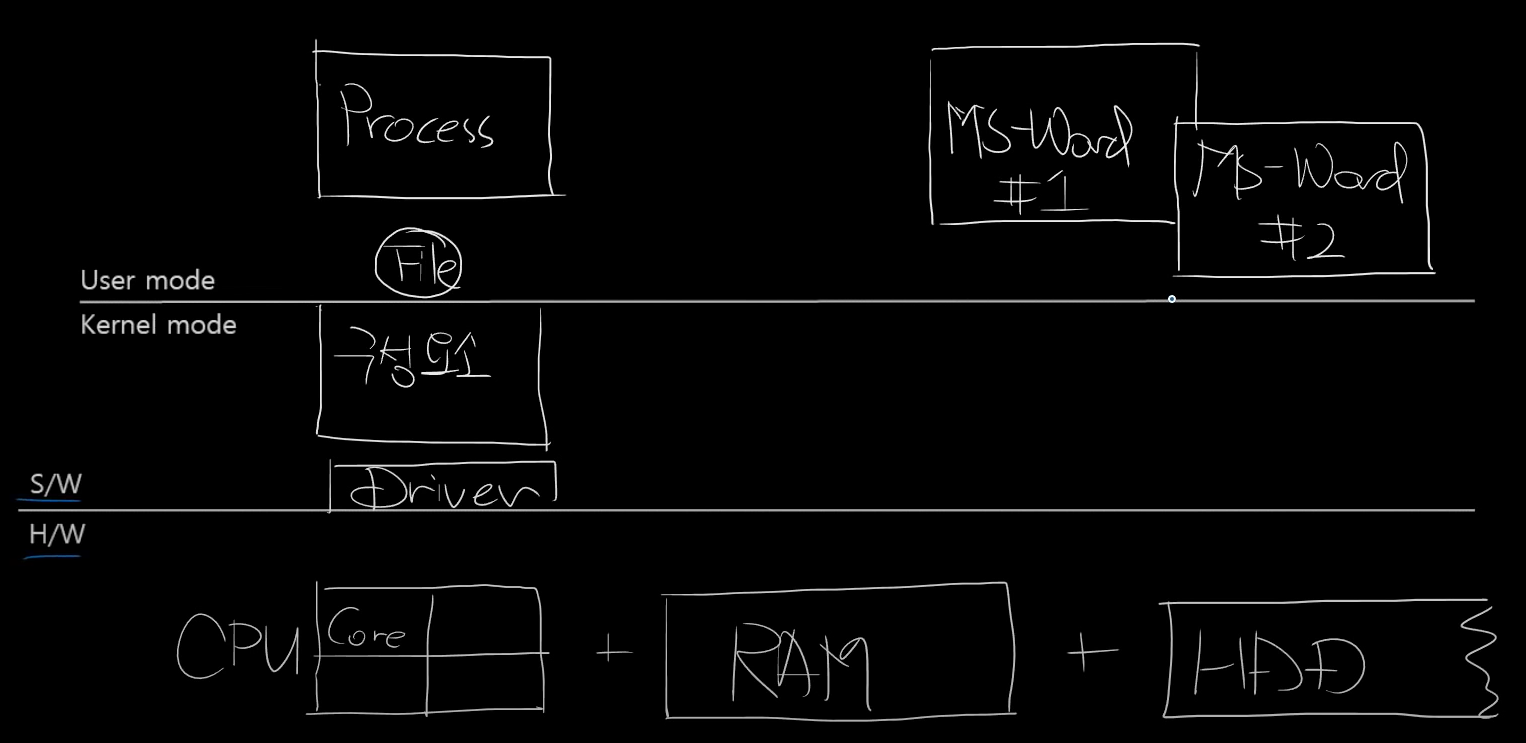 Process
MS-Word
#1
MS-Word
#2
File
User mode
Kernel mode
구성요소
S/W
Driver
H/W
CPU
Core
+
RAM
+
HDD